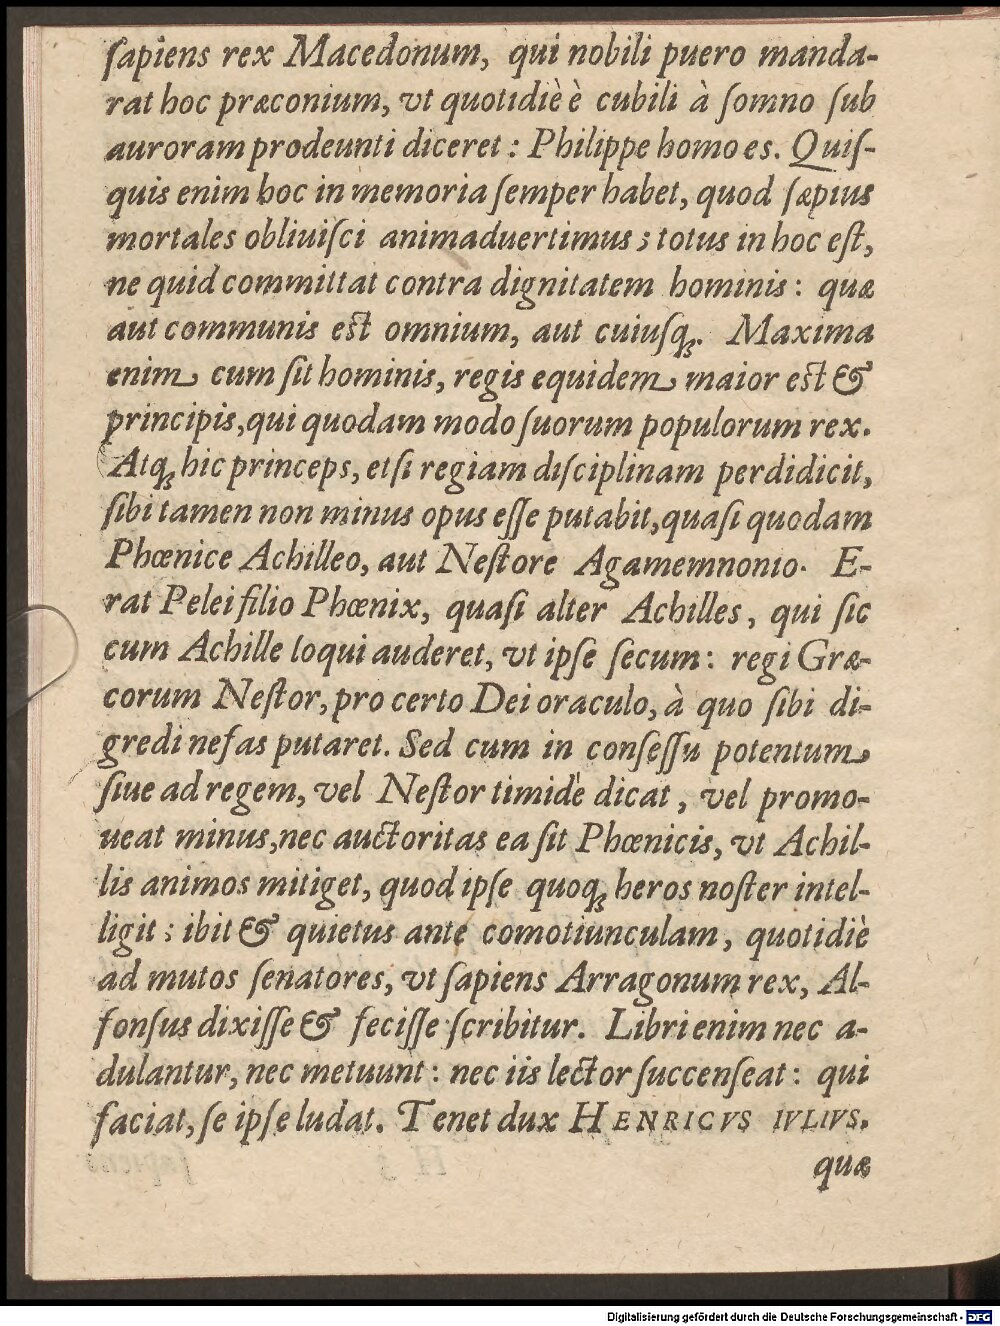 ſapiens rex Macedonum, qui nobili puero manda-
rat hoc præconium, vt quotidiè è cubili à ſomno ſub
auroram prodeunti diceret: Philippe homo es. Quiſ-
quis enim hoc in memoria ſemper habet, quod ſæpius
mortales obliuiſci animaduertimus; totus in hoc eſt,
ne quid committat contra dignitatem hominis: quæ
aut communis eſt omnium, aut cuiuſq́;. Maxima
enim cum ſit hominis, regis equidem maior eſt &
principis, qui quodam modo ſuorum populorum rex.
Atq́; hic princeps, etſi regiam diſciplinam perdidicit,
ſibi tamen non minus opus eſſe putabit, quaſi quodam
Phœnice Achilleo, aut Neſtore Agamemnonio. E-
rat Pelei filio Phœnix, quaſi alter Achilles, qui ſic
cum Achille loqui auderet, vt ipſe ſecum: regi Græ-
corum Neſtor, pro certo Dei oraculo, à quo ſibi di-
gredi nefas putaret. Sed cum in conſeſſu potentum
ſiue ad regem, vel Neſtor timidè dicat, vel promo-
ueat minus, nec auctoritas ea ſit Phœnicis, vt Achil-
lis animos mitiget, quod ipſe quoq́; heros noſter intel-
ligit; ibit & quietus ante comotiunculam, quotidiè
ad mutos ſenatores, vt ſapiens Arragonum rex, Al-
fonſus dixiſſe & feciſſe ſcribitur. Libri enim nec a-
dulantur, nec metuunt: nec iis lector ſuccenſeat: qui
faciat, ſe ipſe ludat. Tenet dux HENRICVS IVLIVS.
quæ
Digitalisierung gefördert durch die Deutsche Forschungsgemeinschaft - DFG